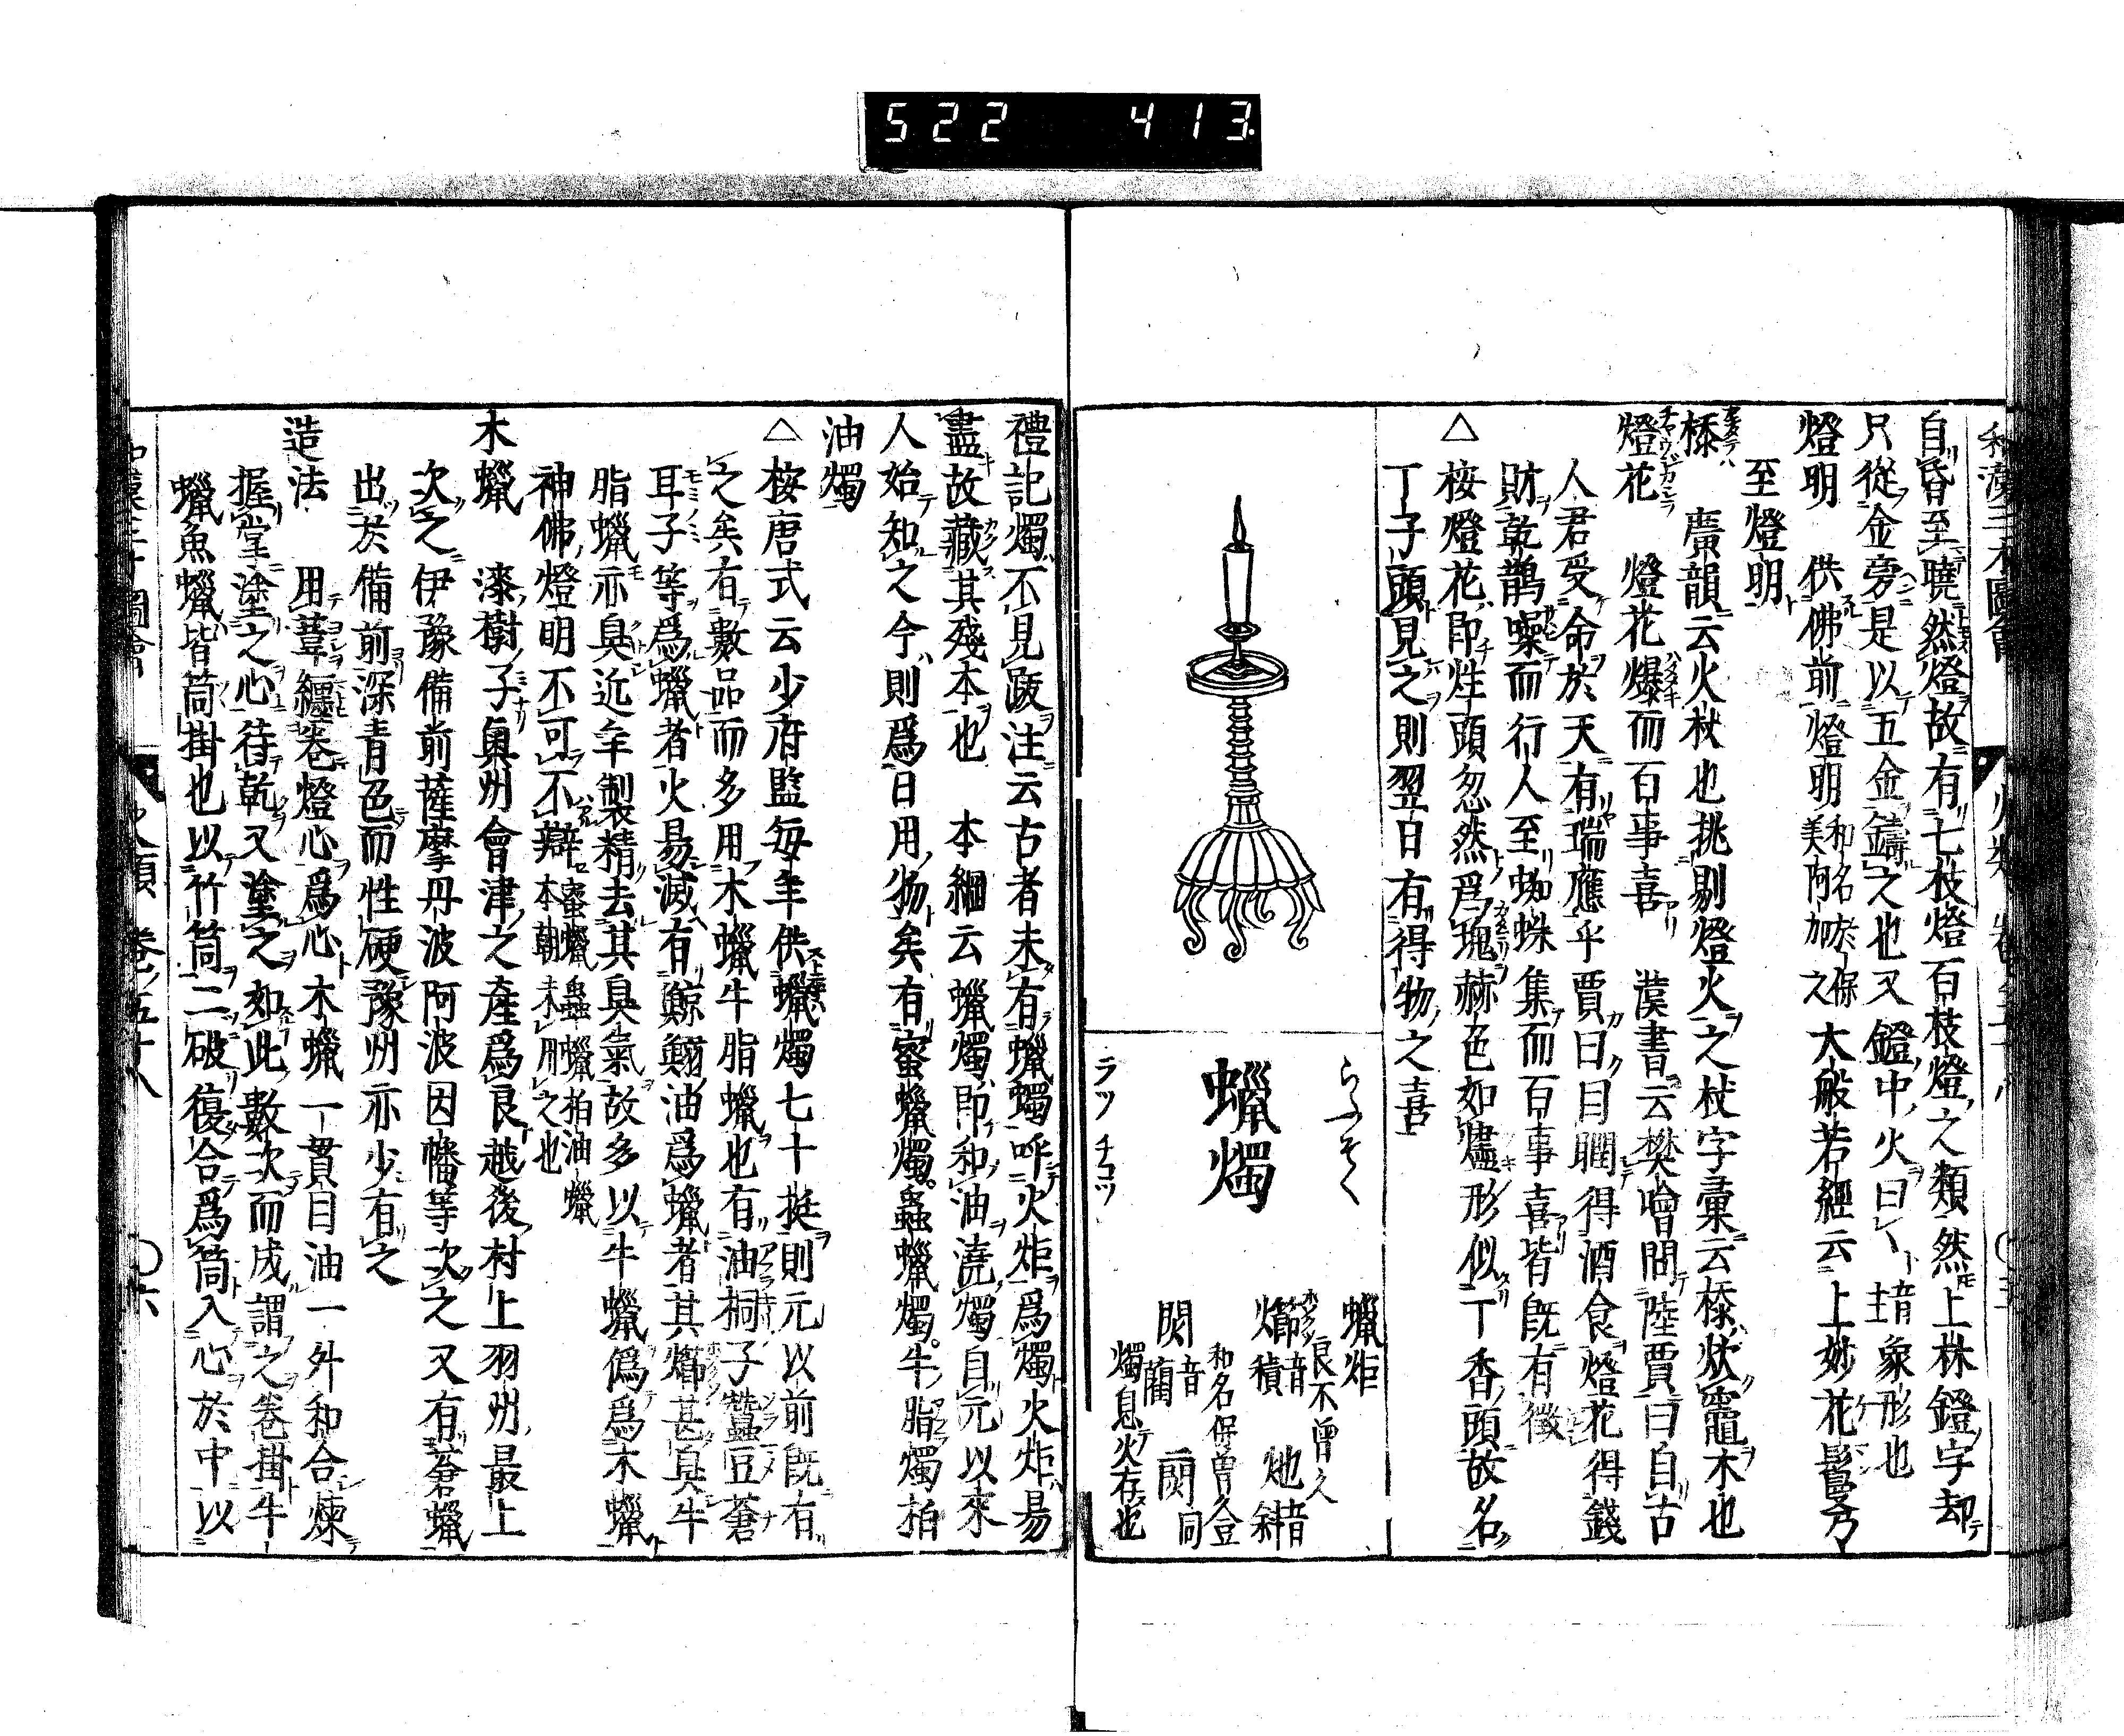 522 413.
自昏至曉然燈故有七枝燈百枝燈之類然上林鐙字却
只從金旁是以五金鑄之也又鐙中火曰丶音主象形也
燈明 供佛前燈明和名於保美阿加之大般若經云上妙花鬘乃
至燈明
㮇 廣韻云火杖也挑剔燈火之杖字彙云㮇炊竈木也
燈花 燈花爆而百事喜 漢書云樊噲問陸賈曰自古
人君受命於天有瑞應乎賈曰目瞤得酒食燈花得錢
財乾鵲噪而行人至蜘蛛集而百事喜皆既有徵
△按燈花即炷頭忽然爲瑰赫色如燼形似丁香頭故名
丁子頭見之則翌日有得物之喜
らふそく
蠟燭
ラツ チヨツ
蠟炬
音積
和名保曽久豆
音藺
燭息火存也
禮記燭不見跋注云古者未有蠟蠋呼火炬爲燭火炬易
盡故藏其殘本也 本綱云蠟燭即和油澆燭自元以來
人始知之今則爲日用物矣有蜜蠟燭。蟲蠟燭。牛脂燭柏
油燭
△按唐式云少府監每年供蠟燭七十挺則元以前既有
之矣有數品而多用木蠟牛脂蠟也有油桐子蠶豆蒼
耳子等爲蠟者火易滅有鯨鰯油爲蠟者其甚臭牛
脂蠟亦臭近年製精去其臭氣故多以牛蠟僞爲木蠟
神佛燈明不可不辯蜜蠟蟲蠟柏油蠟本朝未用之也
木蠟 漆樹子奥州會津之產爲良越後村上羽州最上
次之伊豫備前薩摩丹波阿波因幡等次之又有蒼蠟
出於備前深青色而性硬豫州亦少有之
造法 用葦纏卷燈心爲心木蠟一貫目油一外和合煉
握掌塗之心待乾又塗之如此數次而成謂之卷掛牛
蠟魚蠟皆筒掛也以竹筒二破復合爲筒入心於中以